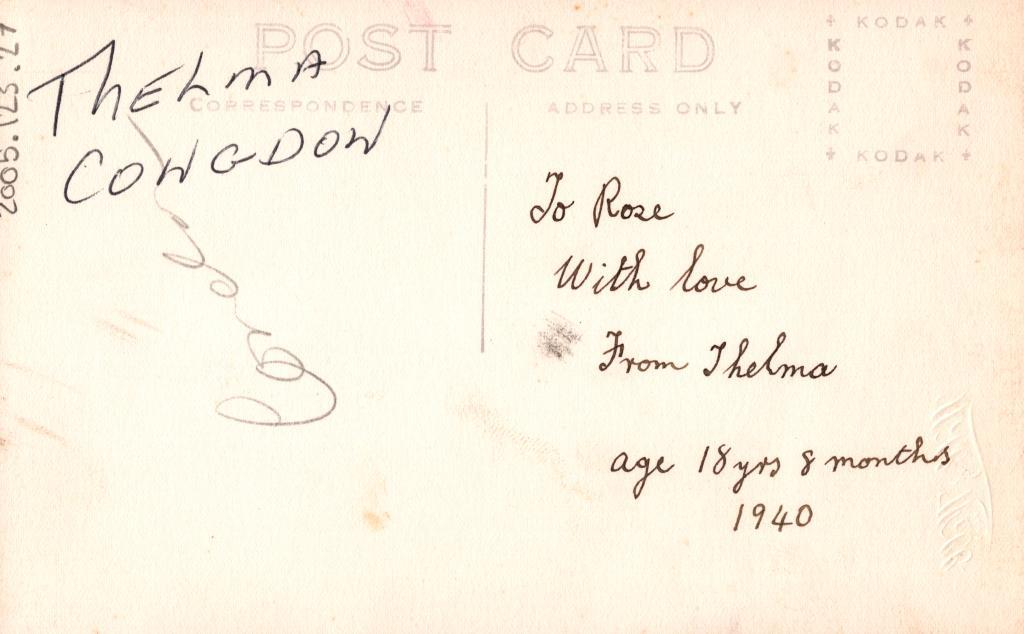 2005.123.27
POST CARD
CORRESPONDENCE
ADDRESS ONLY
KODAK
KODAK
KODAK
KODAK
THELMA
CONGDON
To Rose
With love
From Thelma
age 18 yrs 8 months
1940